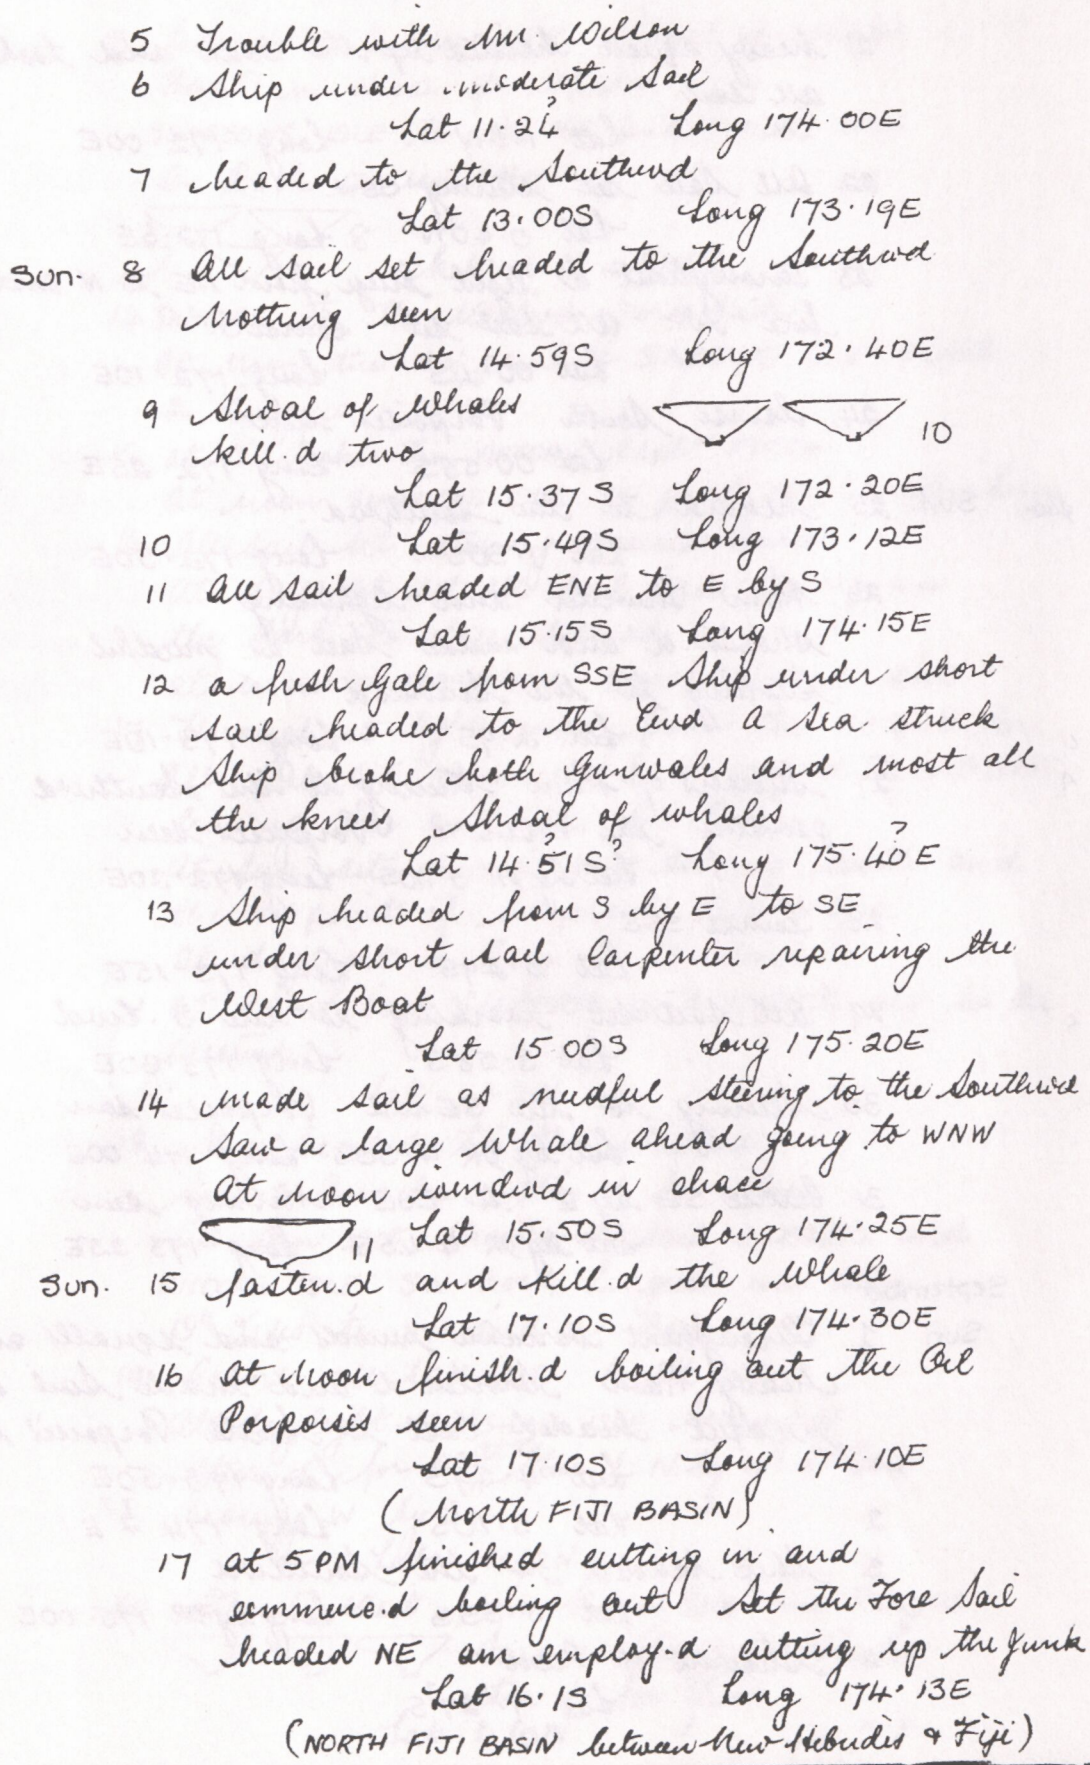 5 Trouble with Mr. Wilson
6 Ship under moderate Sail
Lat 11.24? Long 174.00E
7 headed to the Southwd
Lat 13.00S Long 173.19E
Sun. 8 All sail set headed to the Southwd
Nothing seen
Lat 14.59S Long 172.40E
9 Shoal of Whales 10
kill.d two
Lat 15.37S Long 172.20E
10 Lat 15.49S Long 173.12E
11 All sail headed ENE to E by S
Lat 15.15S Long 174.15E
12 a fresh Gale from SSE Ship under short
sail headed to the Ewd A sea struck
Ship broke both Gunwales and most all
the knees Shoal of whales
Lat 14.?51S? Long 175.40?E
13 Ship headed from S by E to SE
under short sail Carpenter repairing the
West Boat
Lat 15.00S Long 175.20E
14 made sail as needful steering to the Southwd
Saw a large Whale ahead going to WNW
At Noon in chace
11 Lat 15.50S Long 174.25E
Sun. 15 fasten.d and kill.d the Whale
Lat 17.10S Long 174.30E
16 At Noon finish.d boiling out the Oil
Porpoises seen
Lat 17.10S Long 174.10E
(North FIJI BASIN)
17 at 5PM finished cutting in and
commenc.d boiling out Set the Fore Sail
headed NE am employ.d cutting up the Junk
Lat 16.1S Long 174.13E
(NORTH FIJI BASIN between New Hebrides & Fiji)